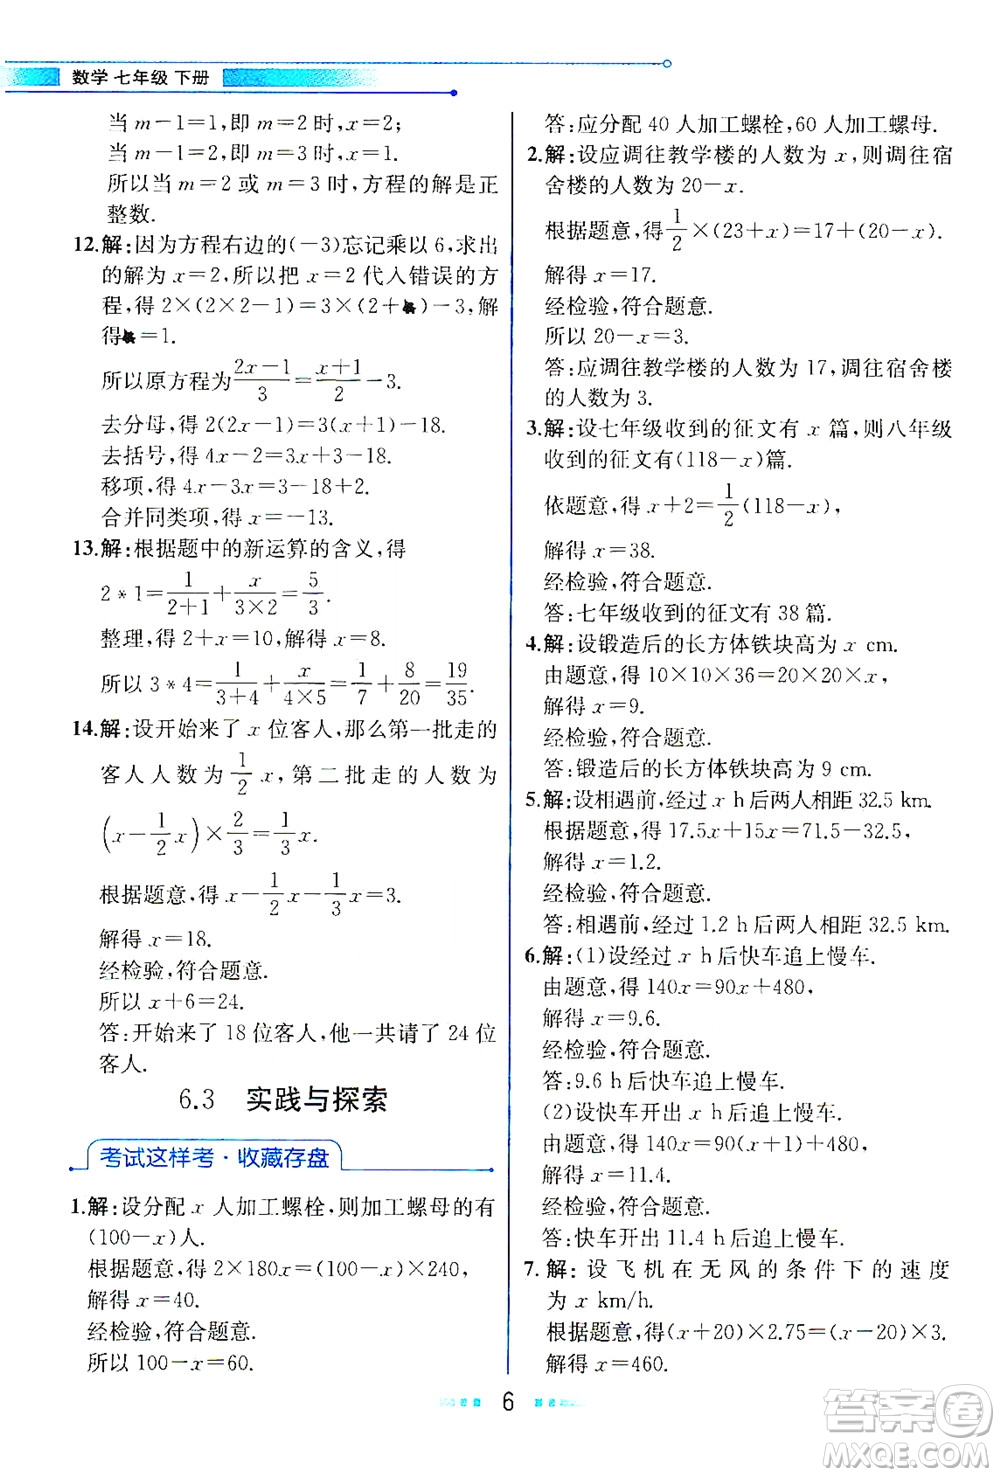 数学 七年级 下册
当 m－1＝1,即 m＝2 时,x＝2;
当 m－1＝2,即 m＝3 时,x＝1.
所以当 m＝2 或 m＝3 时,方程的解是正
整数.
12.解:因为方程右边的(－3)忘记乘以 6,求出
的解为 x＝2,所以把 x＝2 代入错误的方
程,得 2×(2×2－1)＝3×(2＋♣)－3,解
得♣＝1.
所以原方程为(2x－1)/3＝(x＋1)/2－3.
去分母,得 2(2x－1)＝3(x＋1)－18.
去括号,得 4x－2＝3x＋3－18.
移项,得 4x－3x＝3－18＋2.
合并同类项,得 x＝－13.
13.解:根据题中的新运算的含义,得
2＊1＝1/(2＋1)＋x/(3×2)＝5/3.
整理,得 2＋x＝10,解得 x＝8.
所以 3＊4＝1/(3＋4)＋x/(4×5)＝1/7＋8/20＝19/35.
14.解:设开始来了 x 位客人,那么第一批走的
客人人数为 1/2 x,第二批走的人数为
(x－1/2 x)×2/3＝1/3 x.
根据题意,得 x－1/2 x－1/3 x＝3.
解得 x＝18.
经检验,符合题意.
所以 x＋6＝24.
答:开始来了 18 位客人,他一共请了 24 位
客人.
6.3 实践与探索
考试这样考·收藏存盘
1.解:设分配 x 人加工螺栓,则加工螺母的有
(100－x)人.
根据题意,得 2×180x＝(100－x)×240,
解得 x＝40.
经检验,符合题意.
所以 100－x＝60.
答:应分配 40 人加工螺栓,60 人加工螺母.
2.解:设应调往教学楼的人数为 x,则调往宿
舍楼的人数为 20－x.
根据题意,得 1/2×(23＋x)＝17＋(20－x).
解得 x＝17.
经检验,符合题意.
所以 20－x＝3.
答:应调往教学楼的人数为 17,调往宿舍楼
的人数为 3.
3.解:设七年级收到的征文有 x 篇,则八年级
收到的征文有(118－x)篇.
依题意,得 x＋2＝1/2(118－x),
解得 x＝38.
经检验,符合题意.
答:七年级收到的征文有 38 篇.
4.解:设锻造后的长方体铁块高为 x cm.
由题意,得 10×10×36＝20×20×x,
解得 x＝9.
经检验,符合题意.
答:锻造后的长方体铁块高为 9 cm.
5.解:设相遇前,经过 x h 后两人相距 32.5 km.
根据题意,得 17.5x＋15x＝71.5－32.5,
解得 x＝1.2.
经检验,符合题意.
答:相遇前,经过 1.2 h 后两人相距 32.5 km.
6.解:(1)设经过 x h 后快车追上慢车.
由题意,得 140x＝90x＋480,
解得 x＝9.6.
经检验,符合题意.
答:9.6 h 后快车追上慢车.
(2)设快车开出 x h 后追上慢车.
由题意,得 140x＝90(x＋1)＋480,
解得 x＝11.4.
经检验,符合题意.
答:快车开出 11.4 h 后追上慢车.
7.解:设飞机在无风的条件下的速度
为 x km/h.
根据题意,得(x＋20)×2.75＝(x－20)×3.
解得 x＝460.
6
答案圈
MXQE.COM